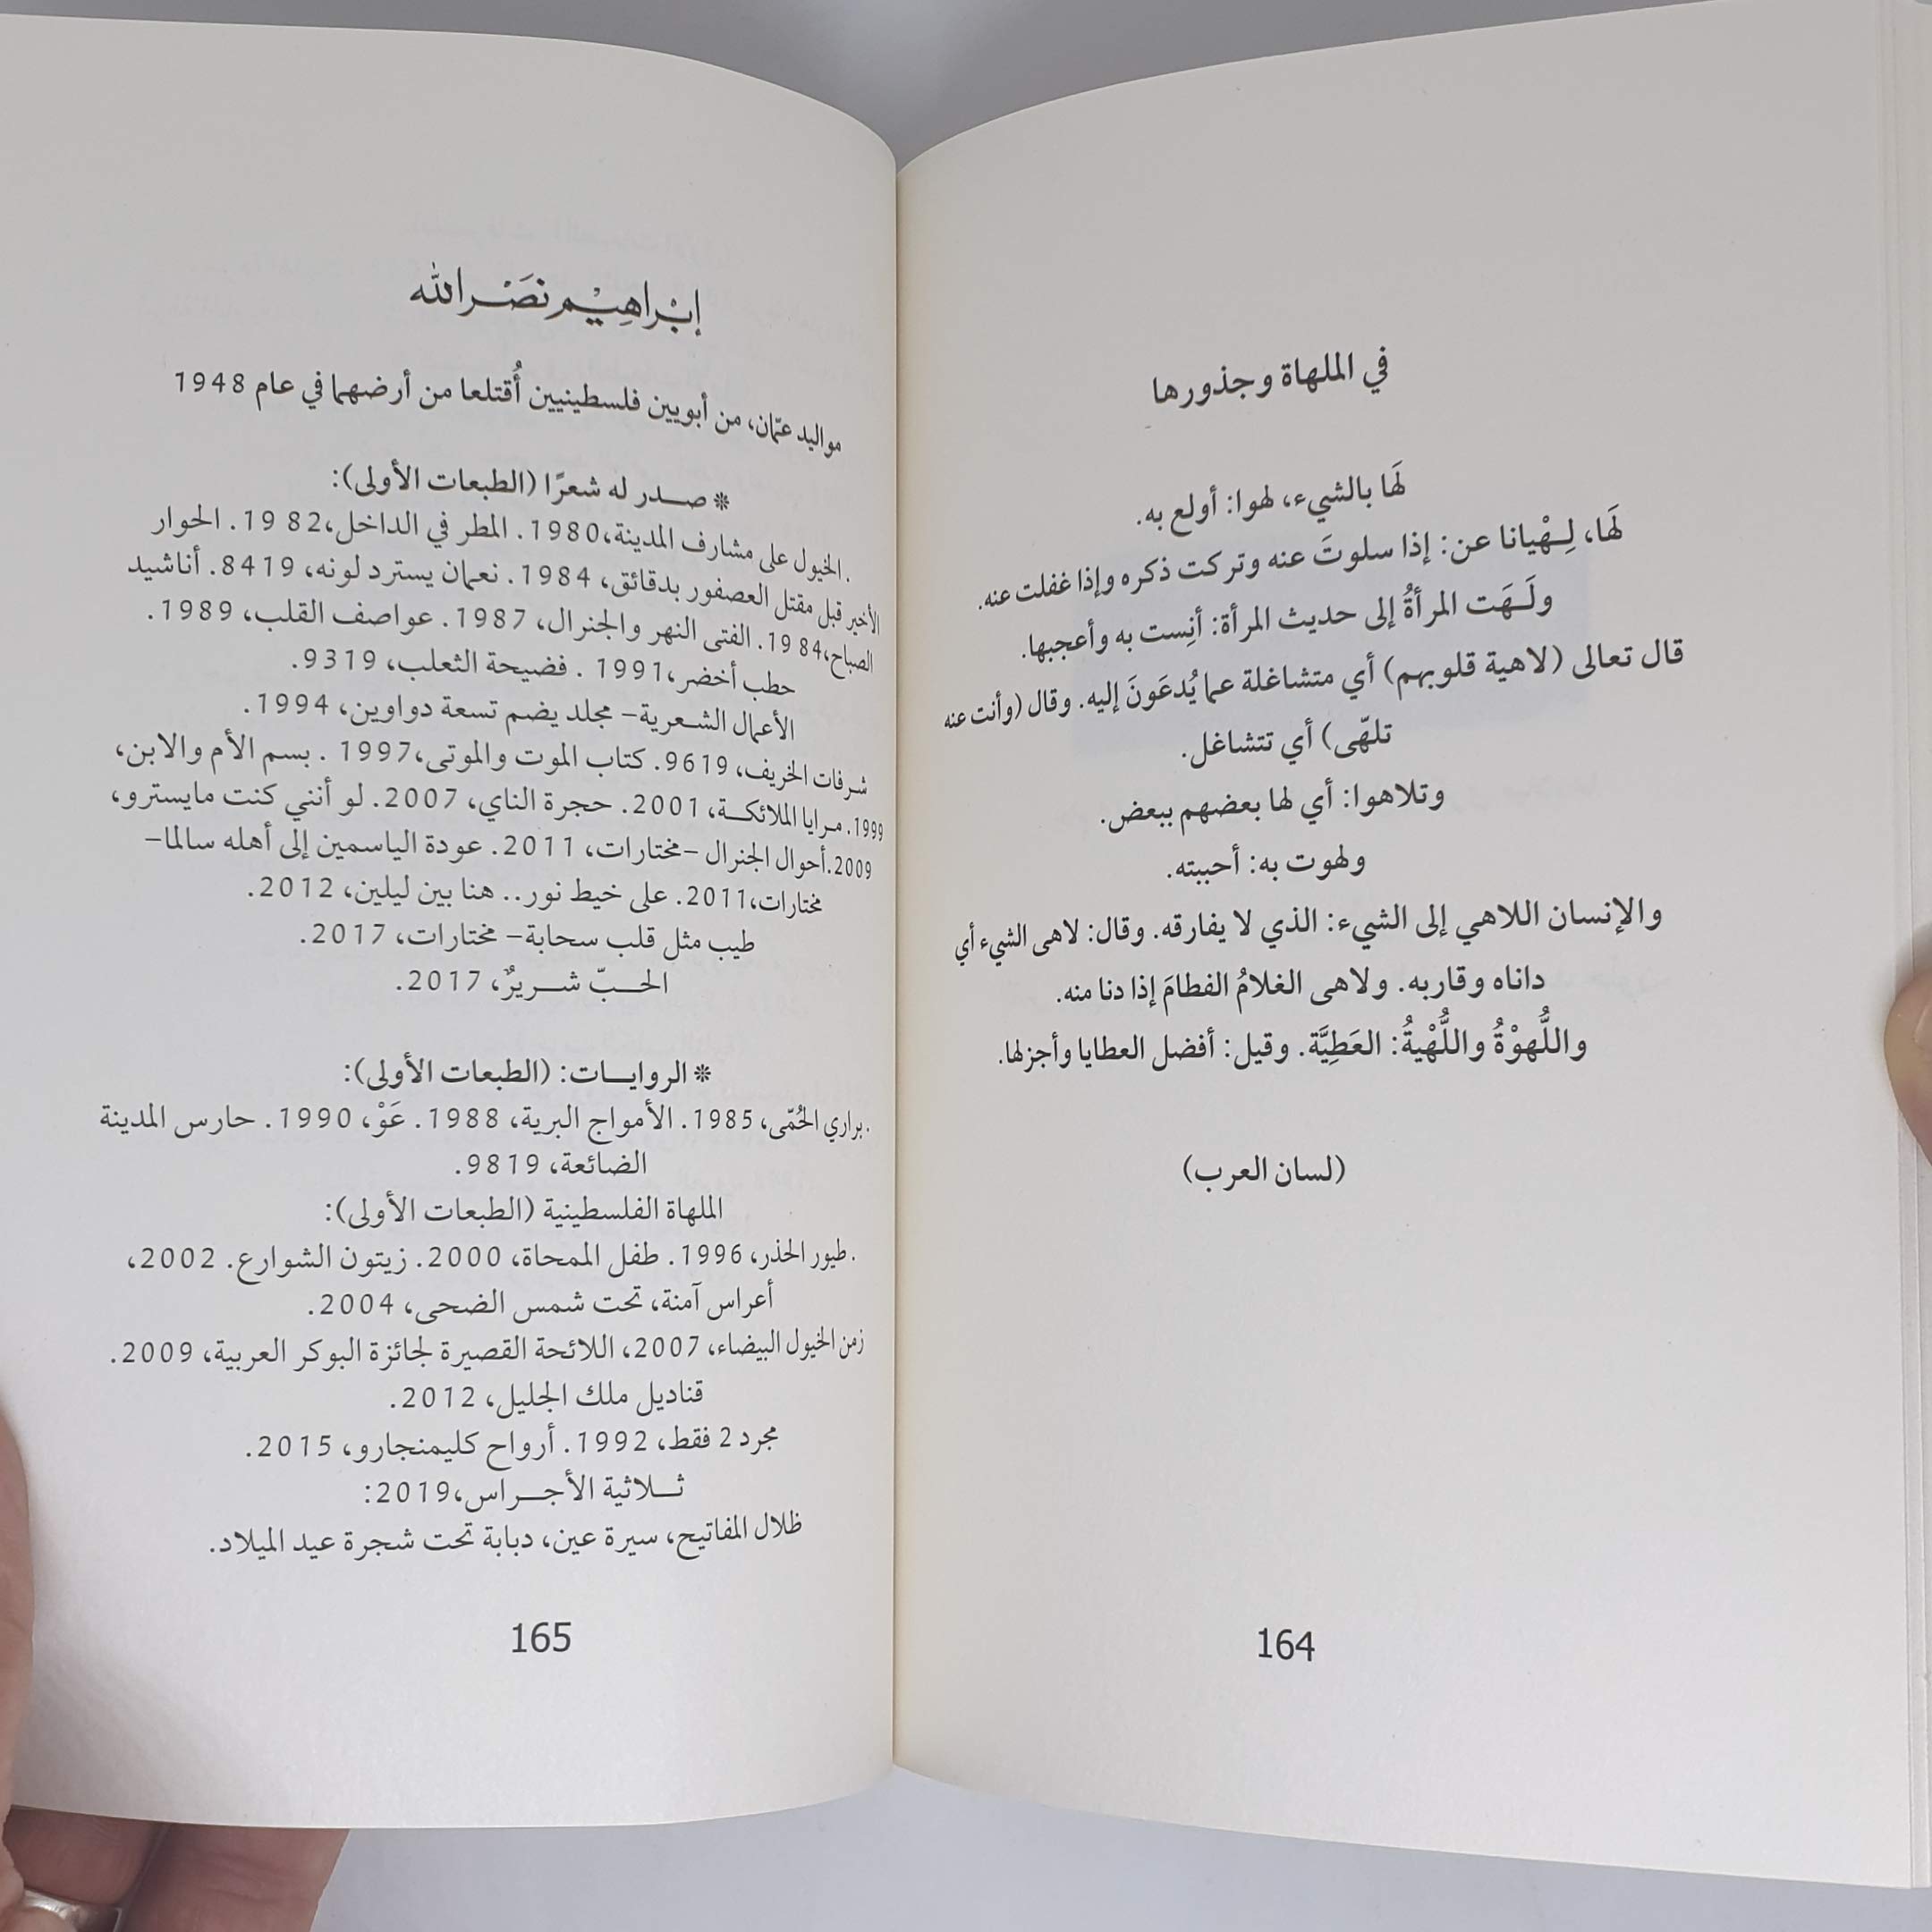 في الملهاة وجذورها
لَها بالشيء، لهوا: أولع به.
لَها، لِـهْيانا عن: إذا سلوتَ عنه وتركت ذكره وإذا غفلت عنه.
ولَـهَت المرأةُ إلى حديث المرأة: أنِست به وأعجبها.
قال تعالى (لاهية قلوبهم) أي متشاغلة عما يُدعَونَ إليه. وقال (وأنت عنه
تلهّى) أي تتشاغل.
وتلاهوا: أي لها بعضهم ببعض.
ولهوت به: أحببته.
والإنسان اللاهي إلى الشيء: الذي لا يفارقه. وقال: لاهى الشيء أي
داناه وقاربه. ولاهى الغلامُ الفطامَ إذا دنا منه.
واللُّهوْةُ واللُّهْيةُ: العَطِيَّة. وقيل: أفضل العطايا وأجزلها.
(لسان العرب)
164
إبْراهِيْم نصَـْرالله
مواليد عمّان، من أبويين فلسطينيين أُقتلعا من أرضهما في عام 1948
* صـدر له شعرًا (الطبعات الأولى):
. الخيول على مشارف المدينة،1980. المطر في الداخل،82 19. الحوار
الأخير قبل مقتل العصفور بدقائق، 1984. نعمان يسترد لونه، 8419. أناشيد
الصباح،84 19. الفتى النهر والجنرال، 1987. عواصف القلب، 1989.
حطب أخضر،1991 . فضيحة الثعلب، 9319.
الأعمال الشـعرية- مجلد يضم تسعة دواوين، 1994.
شرفات الخريف، 9619. كتاب الموت والموتى،1997 . بسم الأم والابن،
1999. مـرايا الملائكـة، 2001. حجرة الناي، 2007. لو أنني كنت مايسترو،
2009.أحوال الجنرال -مختارات، 2011. عودة الياسمين إلى أهله سالما-
مختارات،2011. على خيط نور.. هنا بين ليلين، 2012.
طيب مثل قلب سحابة- مختارات، 2017.
الحـبّ شـريرٌ، 2017.
* الروايـات: (الطبعات الأولى):
.براري الحُمّى، 1985. الأمواج البرية، 1988. عَوْ، 1990. حارس المدينة
الضائعة، 9819.
الملهاة الفلسطينية (الطبعات الأولى):
. طيور الحذر، 1996. طفل الممحاة، 2000. زيتون الشوارع. 2002،
أعراس آمنة، تحت شمس الضحى، 2004.
زمن الخيول البيضاء، 2007، اللائحة القصيرة لجائزة البوكر العربية، 2009.
قناديل ملك الجليل، 2012.
مجرد 2 فقط، 1992. أرواح كليمنجارو، 2015.
ثـلاثية الأجـراس،2019:
ظلال المفاتيح، سيرة عين، دبابة تحت شجرة عيد الميلاد.
165